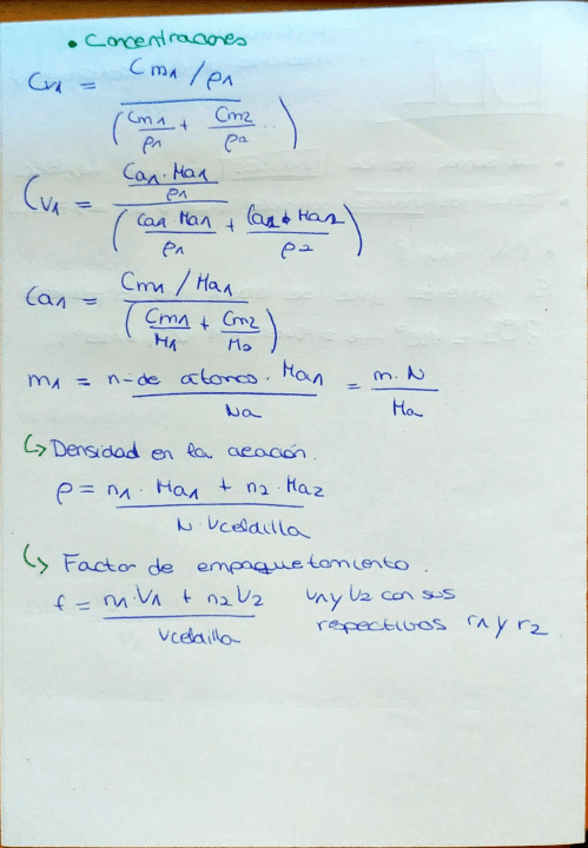 • Concentraciones
Cv1 = (Cm1 / ρ1) / (Cm1/ρ1 + Cm2/ρ2 ..)
Cv1 = (Ca1 · Ma1 / ρ1) / (Ca1 · Ma1 / ρ1 + Ca2 · Ma2 / ρ2)
Ca1 = (Cm1 / Ma1) / (Cm1/M1 + Cm2/M2)
m1 = n-de atomos · Ma1 / Na = m · N / Ma
↳ Densidad en la aeación.
ρ = (n1 · Ma1 + n2 · Ma2) / (N · Vceldilla)
↳ Factor de empaquetamiento.
f = (n1 · V1 + n2 V2) / Vceldilla V1 y V2 con sus
respectivos r1 y r2